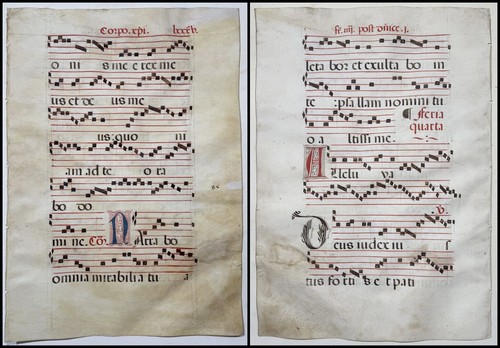 Corpo. xpi. lxxxv.
o ni s me e rex me
us et de us me
us: quo ni
am ad te o ra
bo do
mi ne. Cō. Narra bo
omnia mirabilia tu a
fe. iiij. post dñice. i.
leta bor et exulta bo in
te : psallam nomini tu
¶ feria
quarta
o a ltissi me.
Allelu ya
V.
Deus iudex iu s
tus forti s et pati